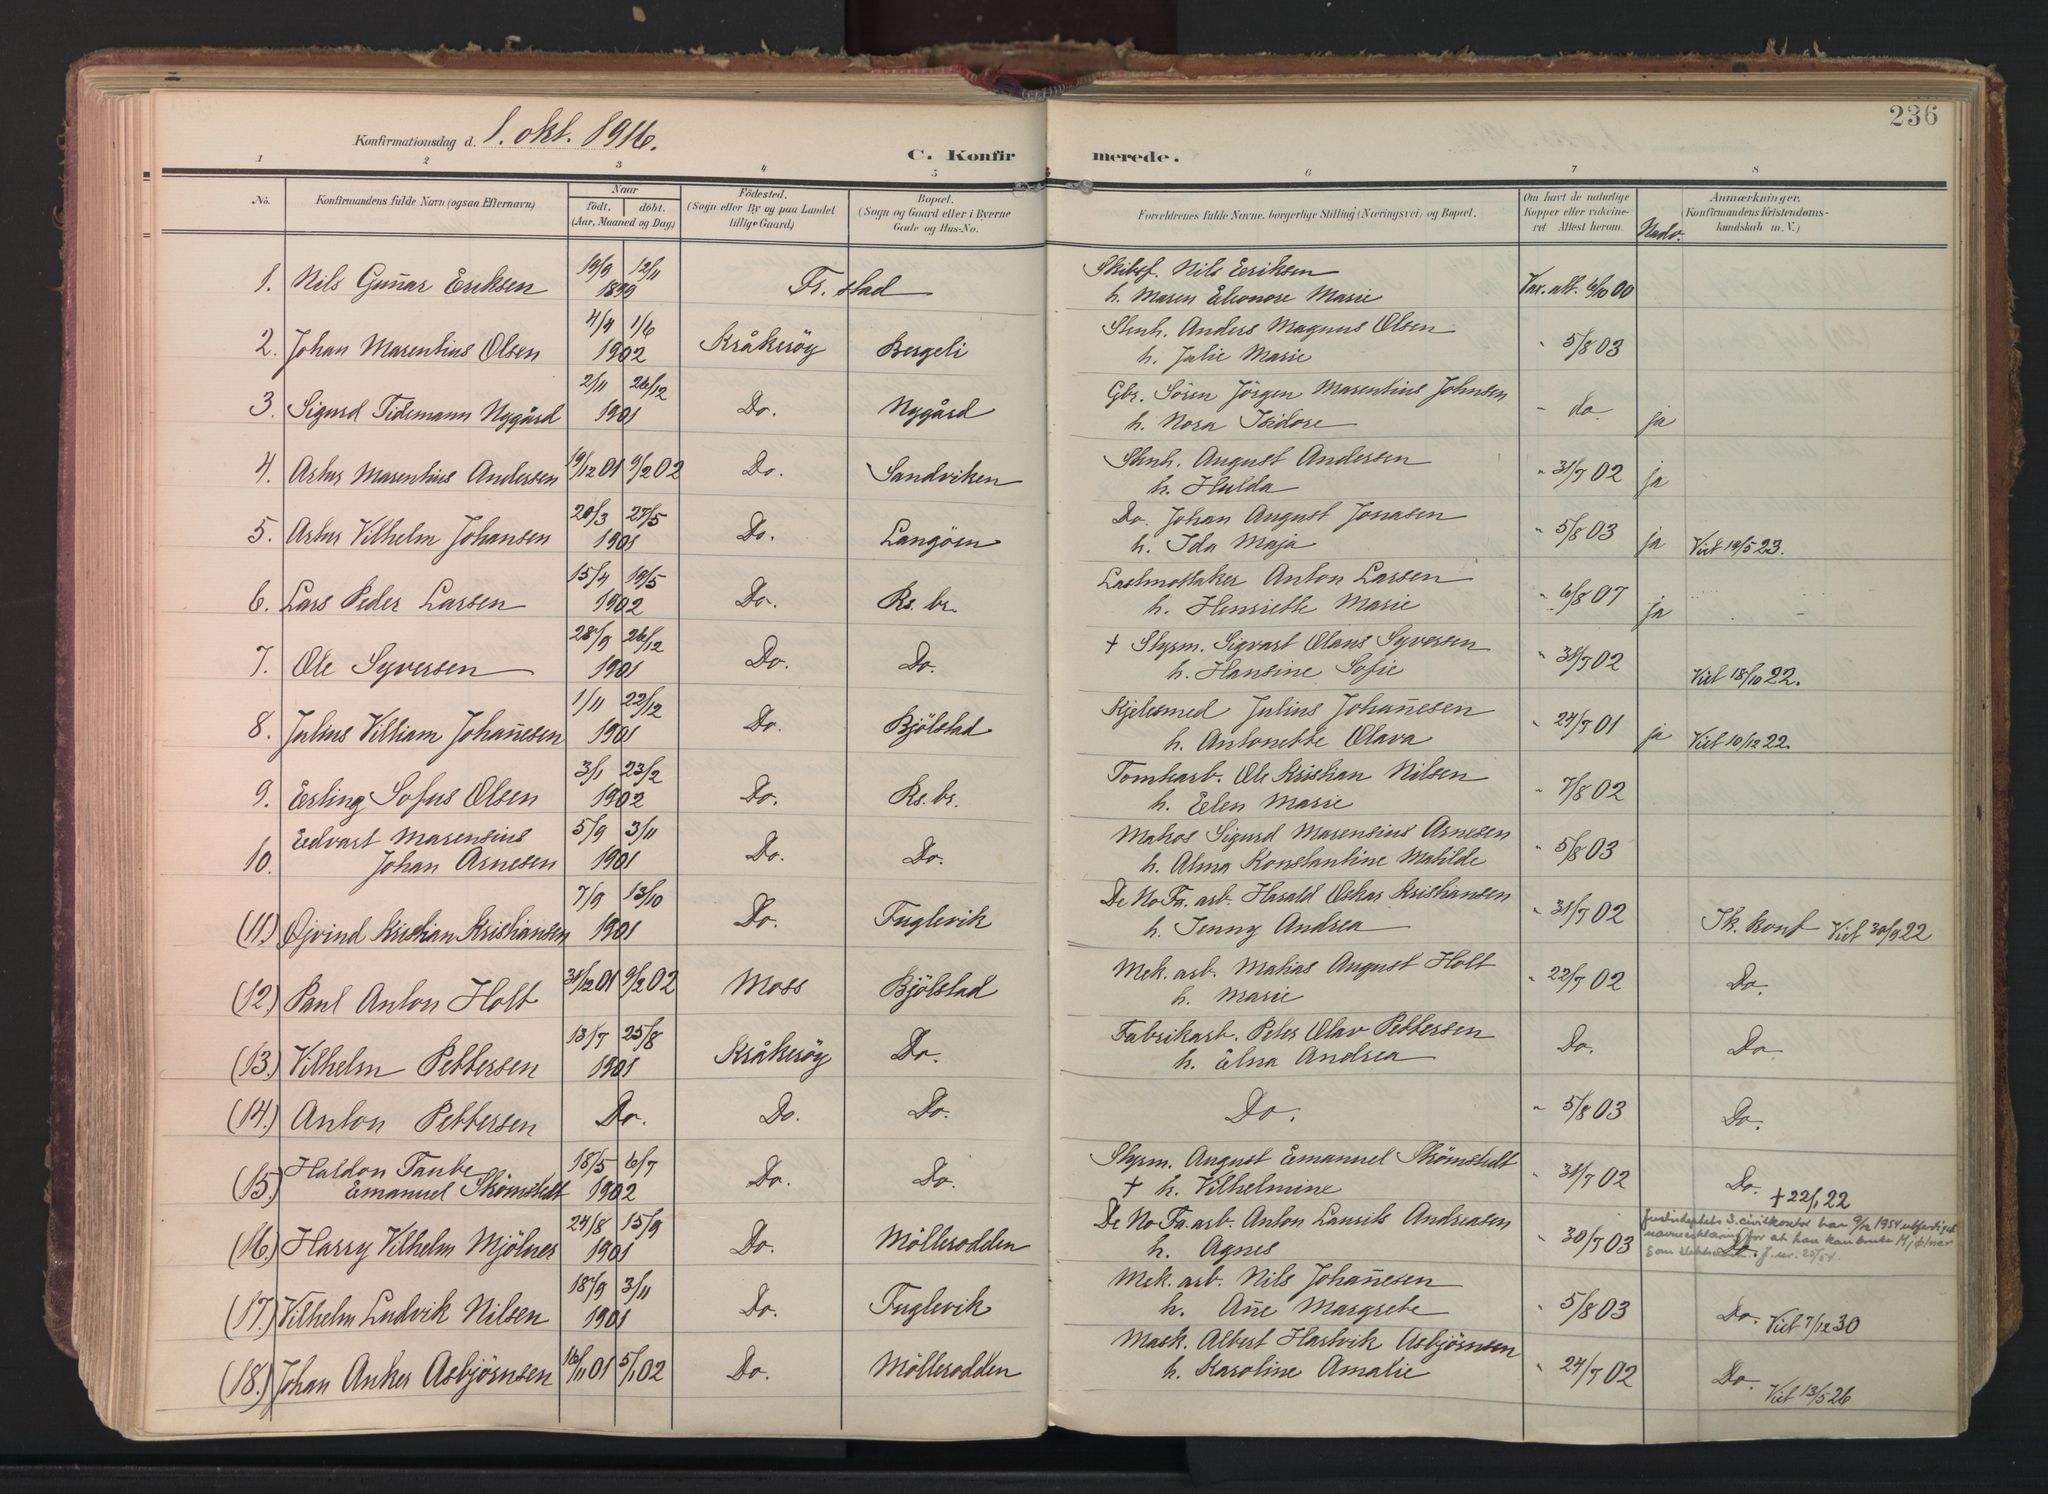 236
Konfirmationsdag d. 1. okt. 1916.
C. Konfirmerede.
1 2 3 4 5 6 7 8
No.
Konfirmandens fulde Navn (ogsaa Efternavn)
Naar
födt. döbt.
(Aar, Maaned og Dag)
Födested.
(Sogn eller By og paa Landet
tillige Gaard)
Bopæl.
(Sogn og Gaard eller i Byerne
Gade og Hus-No.
Forældrenes fulde Navne, borgerlige Stilling (Næringsvei) og Bopæl.
Om havt de naturlige
Kopper eller vakcine-
ret Attest herom.
Nadv.
Anmærkninger.
Konfirmandens Kristendoms-
kundskab m. V.)
1. Nils Gun̄ar Eriksen 19/9 12/11 1899 Fr. stad Skibsf. Nils Eriksen
h. Maren Eleonore Marie Vax. att. 6/10 00
2. Johan Marentius Olsen 4/4 1/6 1902 Kråkeröy Bergeli Stenh. Anders Magnus Olsen
h. Julie Marie " 5/8 03
3. Sigurd Tidemann Nygård 2/11 26/12 1901 Do. Nygård Gbr. Sören Jörgen Marentius Johnsen
h. Nora Isidore - do. ja
4. Artur Marentius Andersen 19/12 01 9/2 02 Do. Sandviken Stenh. August Andersen
h. Hulda " 31/7 02 ja
5. Artur Vilhelm Johansen 20/3 27/5 1901 Do. Langöen Do. Johan August Jonasen
h. Ida Maja " 5/8 03 ja Viet 19/5 23.
6. Lars Peder Larsen 15/4 19/5 1902 Do. Rs. br. Lastmottaker Anton Larsen
h. Henriette Marie " 6/8 07 ja
7. Ole Syversen 28/9 26/12 1901 Do. Do. + Styrm. Sigvart Olaus Syversen
h. Hansine Sofie " 31/7 02 Viet 18/10 22.
8. Julius Villiam Johan̄esen 1/11 22/12 1901 Do. Bjölstad Kjelesmed Julius Johan̄esen
h. Antonette Olava " 24/7 01 ja Viet 10/12 22.
9. Erling Sofus Olsen 3/1 23/2 1902 Do. Rs. br. Tomtearb. Ole Kristian Nilsen
h. Elen Marie " 7/8 02
10. Edvart Marensius
Johan Arnesen 5/9 3/11 1901 Do. Do. Matros Sigurd Marensius Arnesen
h. Alma Konstantine Matilde " 5/8 03
(11.) Øjvind Kristian Kristiansen 7/9 13/10 1901 Do. Fuglevik De No Fa. arb. Harald Oskar Kristiansen
h. Jenny Andrea " 31/7 02 Sk. konf Viet 30/9 22
(12.) Paul Anton Holt 31/12 01 9/2 02 Moss Bjölstad Mek. arb. Matias August Holt
h. Marie " 22/7 02 Do.
(13.) Vilhelm Pettersen 13/7 25/8 1901 Kråkeröy Do. Fabrikarb. Peter Olav Pettersen
h. Elna Andrea Do. Do
(14.) Anton Pettersen Do. Do. Do. Do. " 5/8 03 Do.
(15.) Haldon Taube
Emanuel Strömstedt 18/5 6/7 1902 Do. Do. Styrm. August Emanuel Strömstedt
+ h. Vilhelmine " 31/7 02 Do. + 22/1 22
(16.) Harry Vilhelm Mjölner 24/8 15/9 1901 Do. Möllerodden De No Fa. arb. Anton Laurits Andreasen
h. Agnes " 30/7 03 Do.
Justisdeptets 3. civilkontor har 9/2 1954 utferdiget
navneerklæring for at han kan bruke Mjølner
som
(17.) Vilhelm Ludvik Nilsen 18/9 3/11 1901 Do. Fuglevik Mek. arb. Nils Johan̄esen
h. An̄e Margrete " 5/8 03 Do. Viet 7/12 30
(18.) Johan Anker Asbjörnsen 16/11 01 5/1 02 Do. Möllerodden Mask. Albert Hartvik Asbjörnsen
h. Karoline Amalie " 24/7 02 Do. Viet 13/5 26